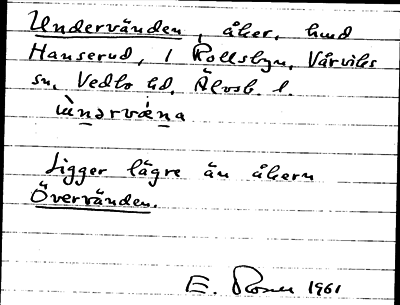 Undervänden, åker, hmd
Hanserud, 1 Rollsbyn, Vårviks
sn, Vedbo hd, Älvsb. l.
ùnərvǽna
Ligger lägre än åkern
Övervänden.
E. Rosell 1961